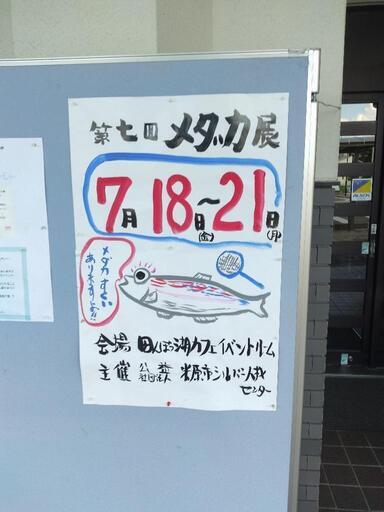 第七回メダカ展
7月18日(金)～21日(月)
メダカすくい
あります!!
会場 田んぼ湖カフェイベントルーム
主催 公益社団法人 米原市シルバー人材
センター